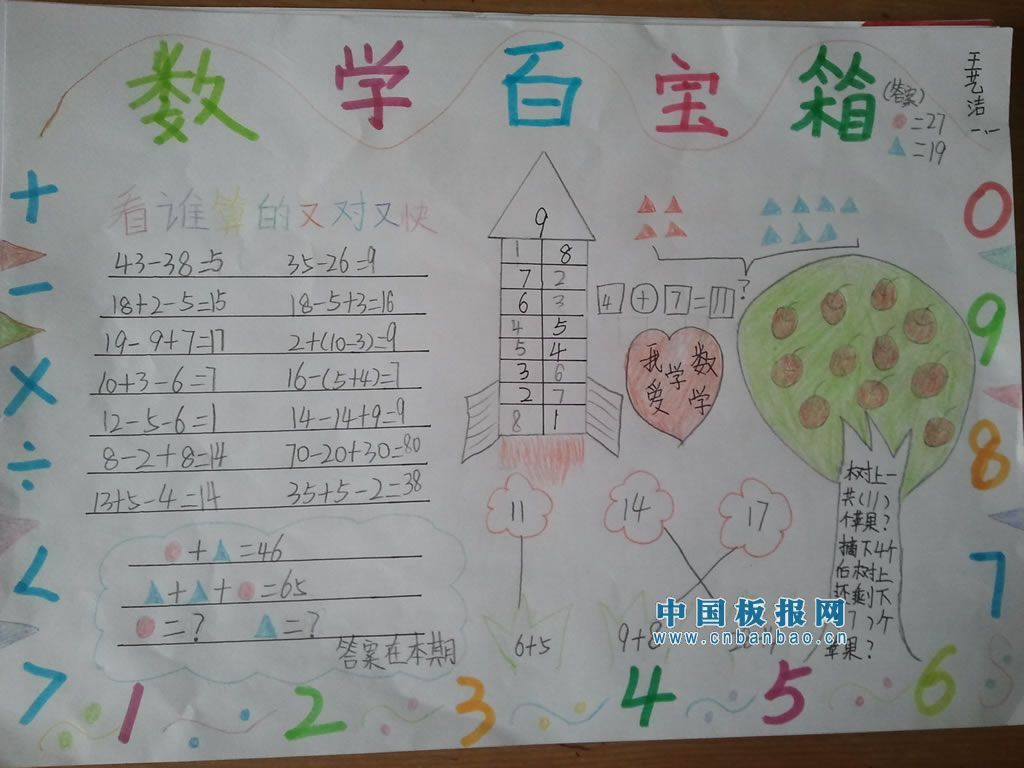 数学百宝箱
王艺洁
一.一
(答案)
=27
=19
看谁算的又对又快
43-38=5 35-26=9
18+2-5=15 18-5+3=16
19-9+7=17 2+(10-3)=9
10+3-6=7 16-(5+4)=7
12-5-6=1 14-14+9=9
8-2+8=14 70-20+30=80
13+5-4=14 35+5-2=38
+ =46
+ + =65
=? =?
答案在本期
9
1 8
7 2
6 3
4 5
5 4
3 6
2 7
8 1
?
4 + 7 = 11
我爱学数学
11 14 17
6+5 9+8
树上一
共(11)
个苹果?
摘下4个
后树上
还剩下
(7)个
苹果?
中国板报网
www.cnbanbao.cn
+
-
×
÷
<
>
1 2 3 4 5 6
7
8
9
0